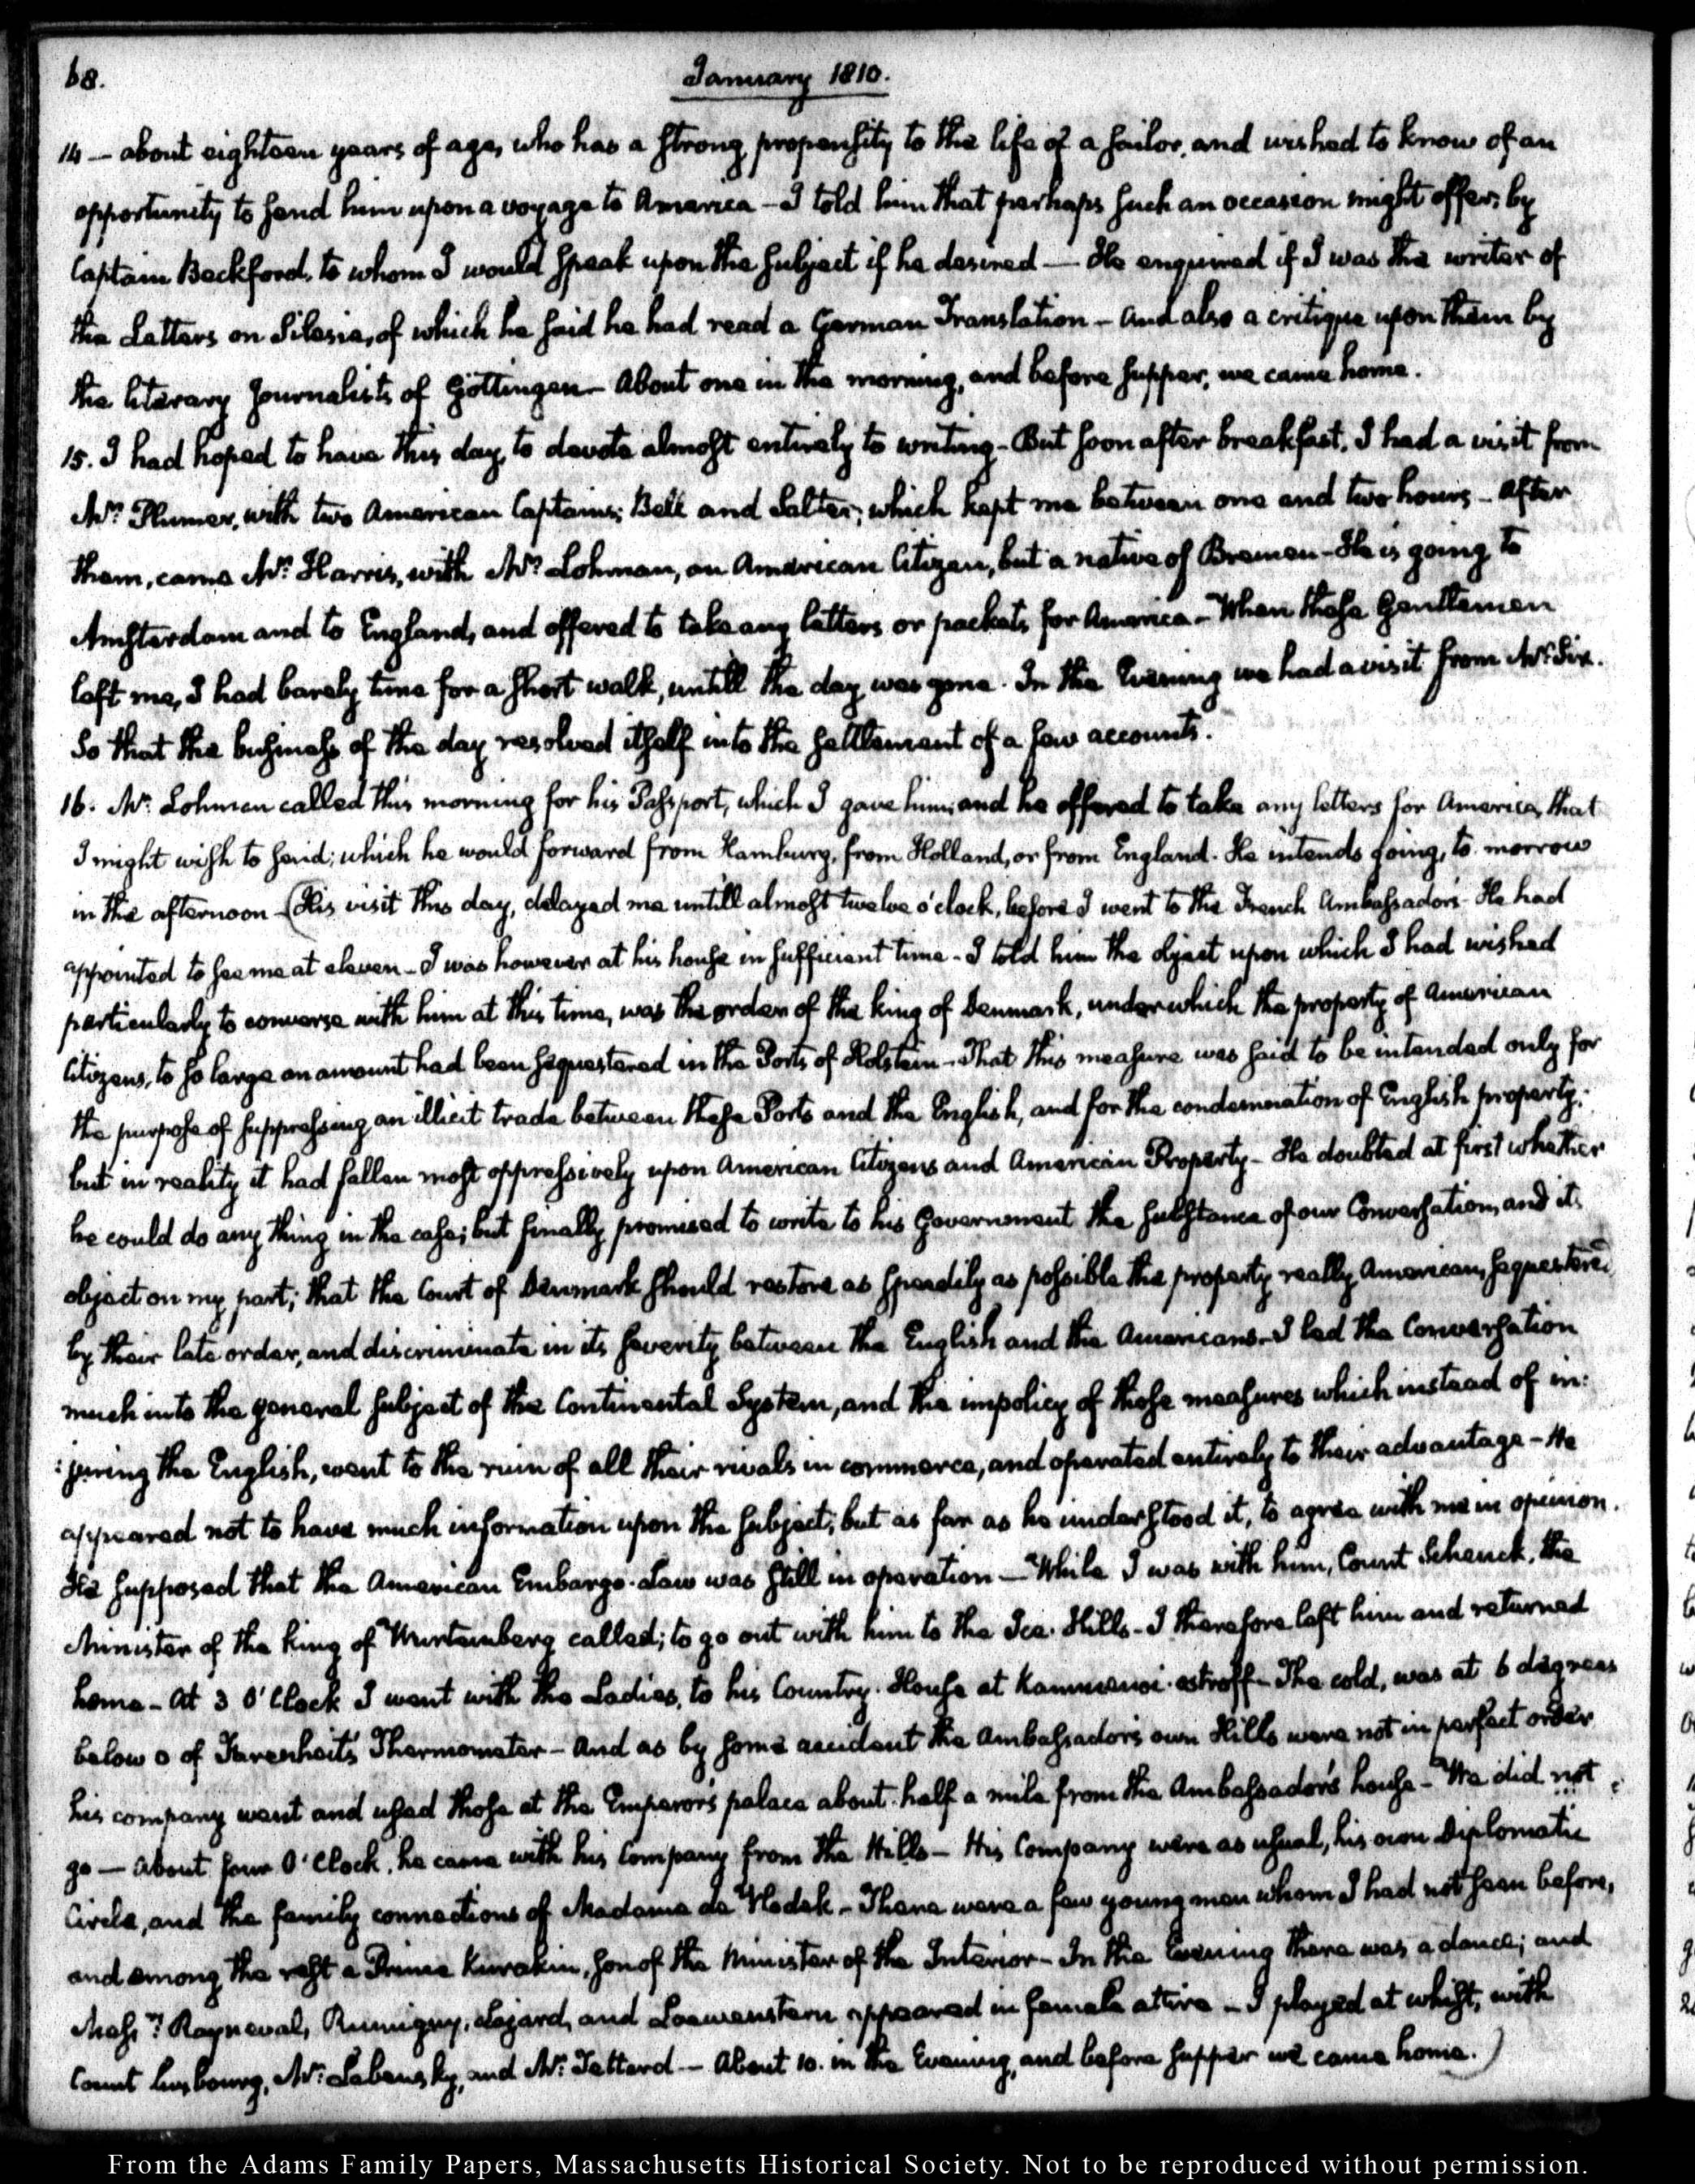 68.
January 1810.
14 — about eighteen years of age, who has a strong propensity to the life of a sailor, and wished to know of an
opportunity to send him upon a voyage to America – I told him that perhaps such an occasion might offer, by
Captain Beckford, to whom I would speak upon the subject if he desired — He enquired if I was the writer of
the Letters on Silesia, of which he said he had read a German Translation – And also a critique upon them by
the literary Journalists of Göttingen – About one in the morning, and before supper, we came home.
15. I had hoped to have this day, to devote almost entirely to writing – But soon after breakfast, I had a visit from
Mr. Plumer, with two American Captains; Bell and Salter; which kept me between one and two hours – After
them, came Mr. Harris, with Mr. Lohman, an American Citizen, but a native of Bremen – He is going to
Amsterdam and to England, and offered to take any letters or packets for America – When these Gentlemen
left me, I had barely time for a short walk, untill the day was gone. In the Evening we had a visit from Mr. Six.
So that the business of the day resolved itself into the settlement of a few accounts.
16. Mr. Lohman called this morning for his Passport, which I gave him; and he offered to take any letters for America, that
I might wish to send; which he would forward from Hamburg, from Holland, or from England. He intends going, to-morrow
in the afternoon – (His visit this day, delayed me untill almost twelve o'clock, before I went to the French Ambassador's – He had
appointed to see me at eleven – I was however at his house in sufficient time – I told him the object upon which I had wished
particularly to converse with him at this time, was the order of the king of Denmark, under which the property of American
Citizens, to so large an amount had been sequestered in the Ports of Holstein – That this measure was said to be intended only for
the purpose of suppressing an illicit trade between these Ports and the English, and for the condemnation of English property;
but in reality it had fallen most oppressively upon American Citizens and American Property – He doubted at first whether
he could do any thing in the case; but finally promised to write to his Government the substance of our Conversation, and its
object on my part; that the Court of Denmark should restore as speedily as possible the property really American, sequestered
by their late order, and discriminate in its severity between the English and the Americans – I led the Conversation
much into the general subject of the Continental System, and the impolicy of those measures which instead of in:
:juring the English, went to the ruin of all their rivals in commerce, and operated entirely to their advantage – He
appeared not to have much information upon the subject; but as far as he understood it, to agree with me in opinion.
He supposed that the American Embargo-Law was still in operation — While I was with him, Count Schenck, the
Minister of the King of Wurtemberg called; to go out with him to the Ice-Hills – I therefore left him and returned
home – At 3 O'Clock I went with the Ladies, to his Country-House at Kammenoi-ostroff – The cold, was at 6 degrees
below 0 of Farenheit's Thermometer – And as by some accident the Ambassador's own Hills were not in perfect order
his company went and used those at the Emperor's palace about half a mile from the Ambassador's house – We did not
go — About four O'Clock, he came with his Company from the Hills – His Company were as usual, his own Diplomatic
Circle, and the family connections of Madame de Vlodek – There were a few young men whom I had not seen before,
and among the rest a Prince Kurakin, son of the Minister of the Interior – In the Evening there was a dance; and
Messrs. Rayneval, Rumigny, Lajard, and Loewenstern appeared in female attire – I played at whist, with
Count Luxbourg, Mr. Labensky, and Mr. Tattard — About 10. in the Evening, and before supper we came home.)
From the Adams Family Papers, Massachusetts Historical Society. Not to be reproduced without permission.